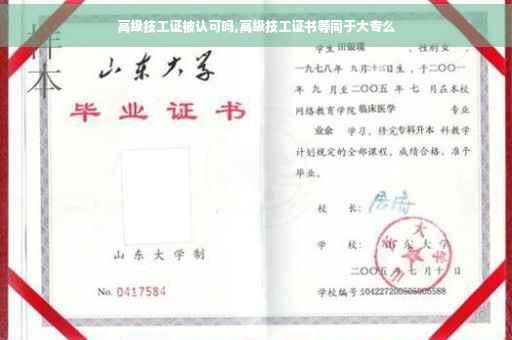 高级技工证被认可吗,高级技工证书等同于大专么
样本
山东大学
毕业证书
山东大学制
No. 0417584
学生
性别女，
一九七八年 九月十三日生，于二〇〇一
年 九 月至二〇〇五 年 七 月在本校
网络教育学院 临床医学 专业
业余 学习，修完专科升本 科教学
计划规定的全部课程，成绩合格，准予
毕业。
校 长：
学 校：山东大学
二〇〇五 年 七 月 十 日
学校编号:104227200505005588